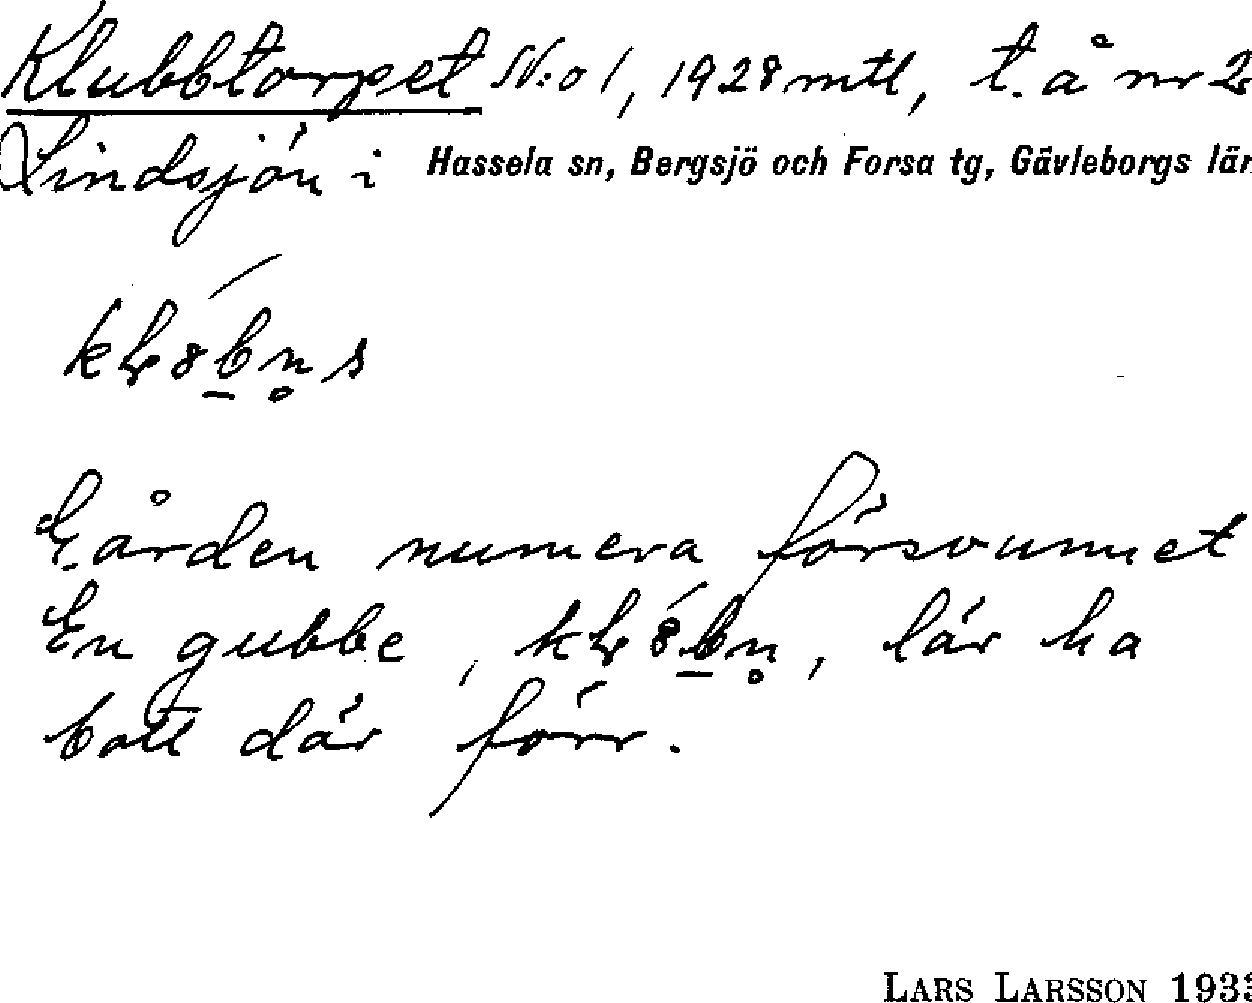 Klubbtorpet N:o 1, 1928 mtl, t. å nr 2
Lindsjön i Hassela sn, Bergsjö och Forsa tg, Gävleborgs län
Gården numera försvunnet
En gubbe, lär ha
bott där förr.
LARS LARSSON 193